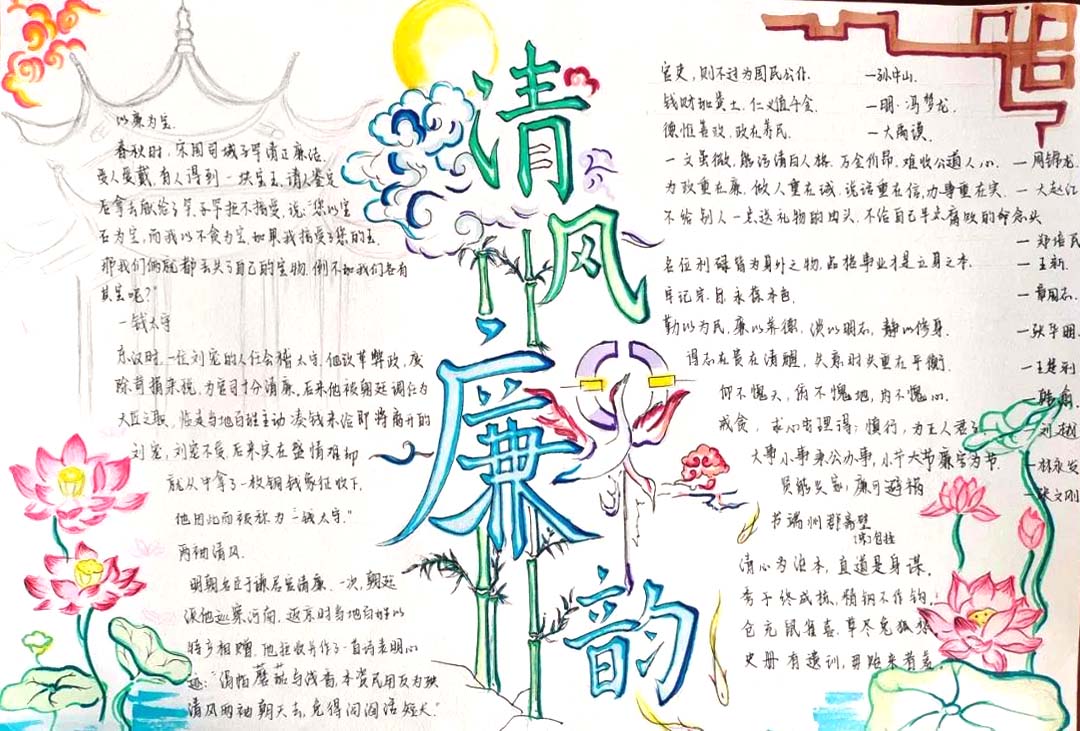 清风廉韵
以廉为宝.
春秋时,宋国司城子罕清正廉洁,
受人爱戴,有人得到一块宝玉,请人鉴定
后拿去献给子罕,子罕拒不接受,说:"您以宝
石为宝,而我以不贪为宝,如果我接受了您的玉,
那我们俩就都丢失了自己的宝物,倒不如我们各有
其宝呢?"
一钱太守
东汉时,一位刘宠的人任会稽太守,他改革弊政,废
除苛捐杂税,为官司十分清廉,后来他被朝廷调任为
大匠之职,临走当地百姓主动凑钱来给即将离开的
刘宠,刘宠不受,后来实在盛情难却
就从中拿了一枚铜钱象征收下,
他因此而被称为"一钱太守."
两袖清风.
明朝名臣于谦居官清廉,一次,朝廷
派他巡察河南,返京时当地百姓以
特乡相赠,他拒收并作了一首诗表明心
迹:"绢帕蘑菇与线香,本资民用反为殃
清风两袖朝天去,免得闾阎话短长."
官吏,则不过为国民公仆. —孙中山.
钱财如粪土,仁义值千金. —明·冯梦龙.
德惟善政,政在养民. —大禹谟.
一文虽微,能污清白人格.万金价昂,难收公道人心. —周锦龙.
为政重在廉,做人重在诚,说话重在信,办事重在实. —大赵红
不给别人一点送礼物的由头,不给自己半点腐败的命念头
—郑培民
名位利碌皆为身外之物,品格事业才是立身之本. —王新.
牢记宗旨永葆本色. —章国志.
勤以为民,廉以养德,淡以明志,静以修身. —张华明.
得志在贵在清醒,失意时失重在平衡. —王楚利
仰不愧天,俯不愧地,内不愧心. —韩愈.
戒贪,求心安理得;慎行,为正人君子 —刘越
大事小事秉公办事,小节大节廉字为节. —林永发
贤能失家;廉可避祸 —张文刚
书端州郡斋壁
(宋)包拯
清心为治本,直道是身谋,
秀干终成栋,精钢不作钩,
仓充鼠雀喜,草尽兔狐愁,
史册有遗训,毋贻来者羞.